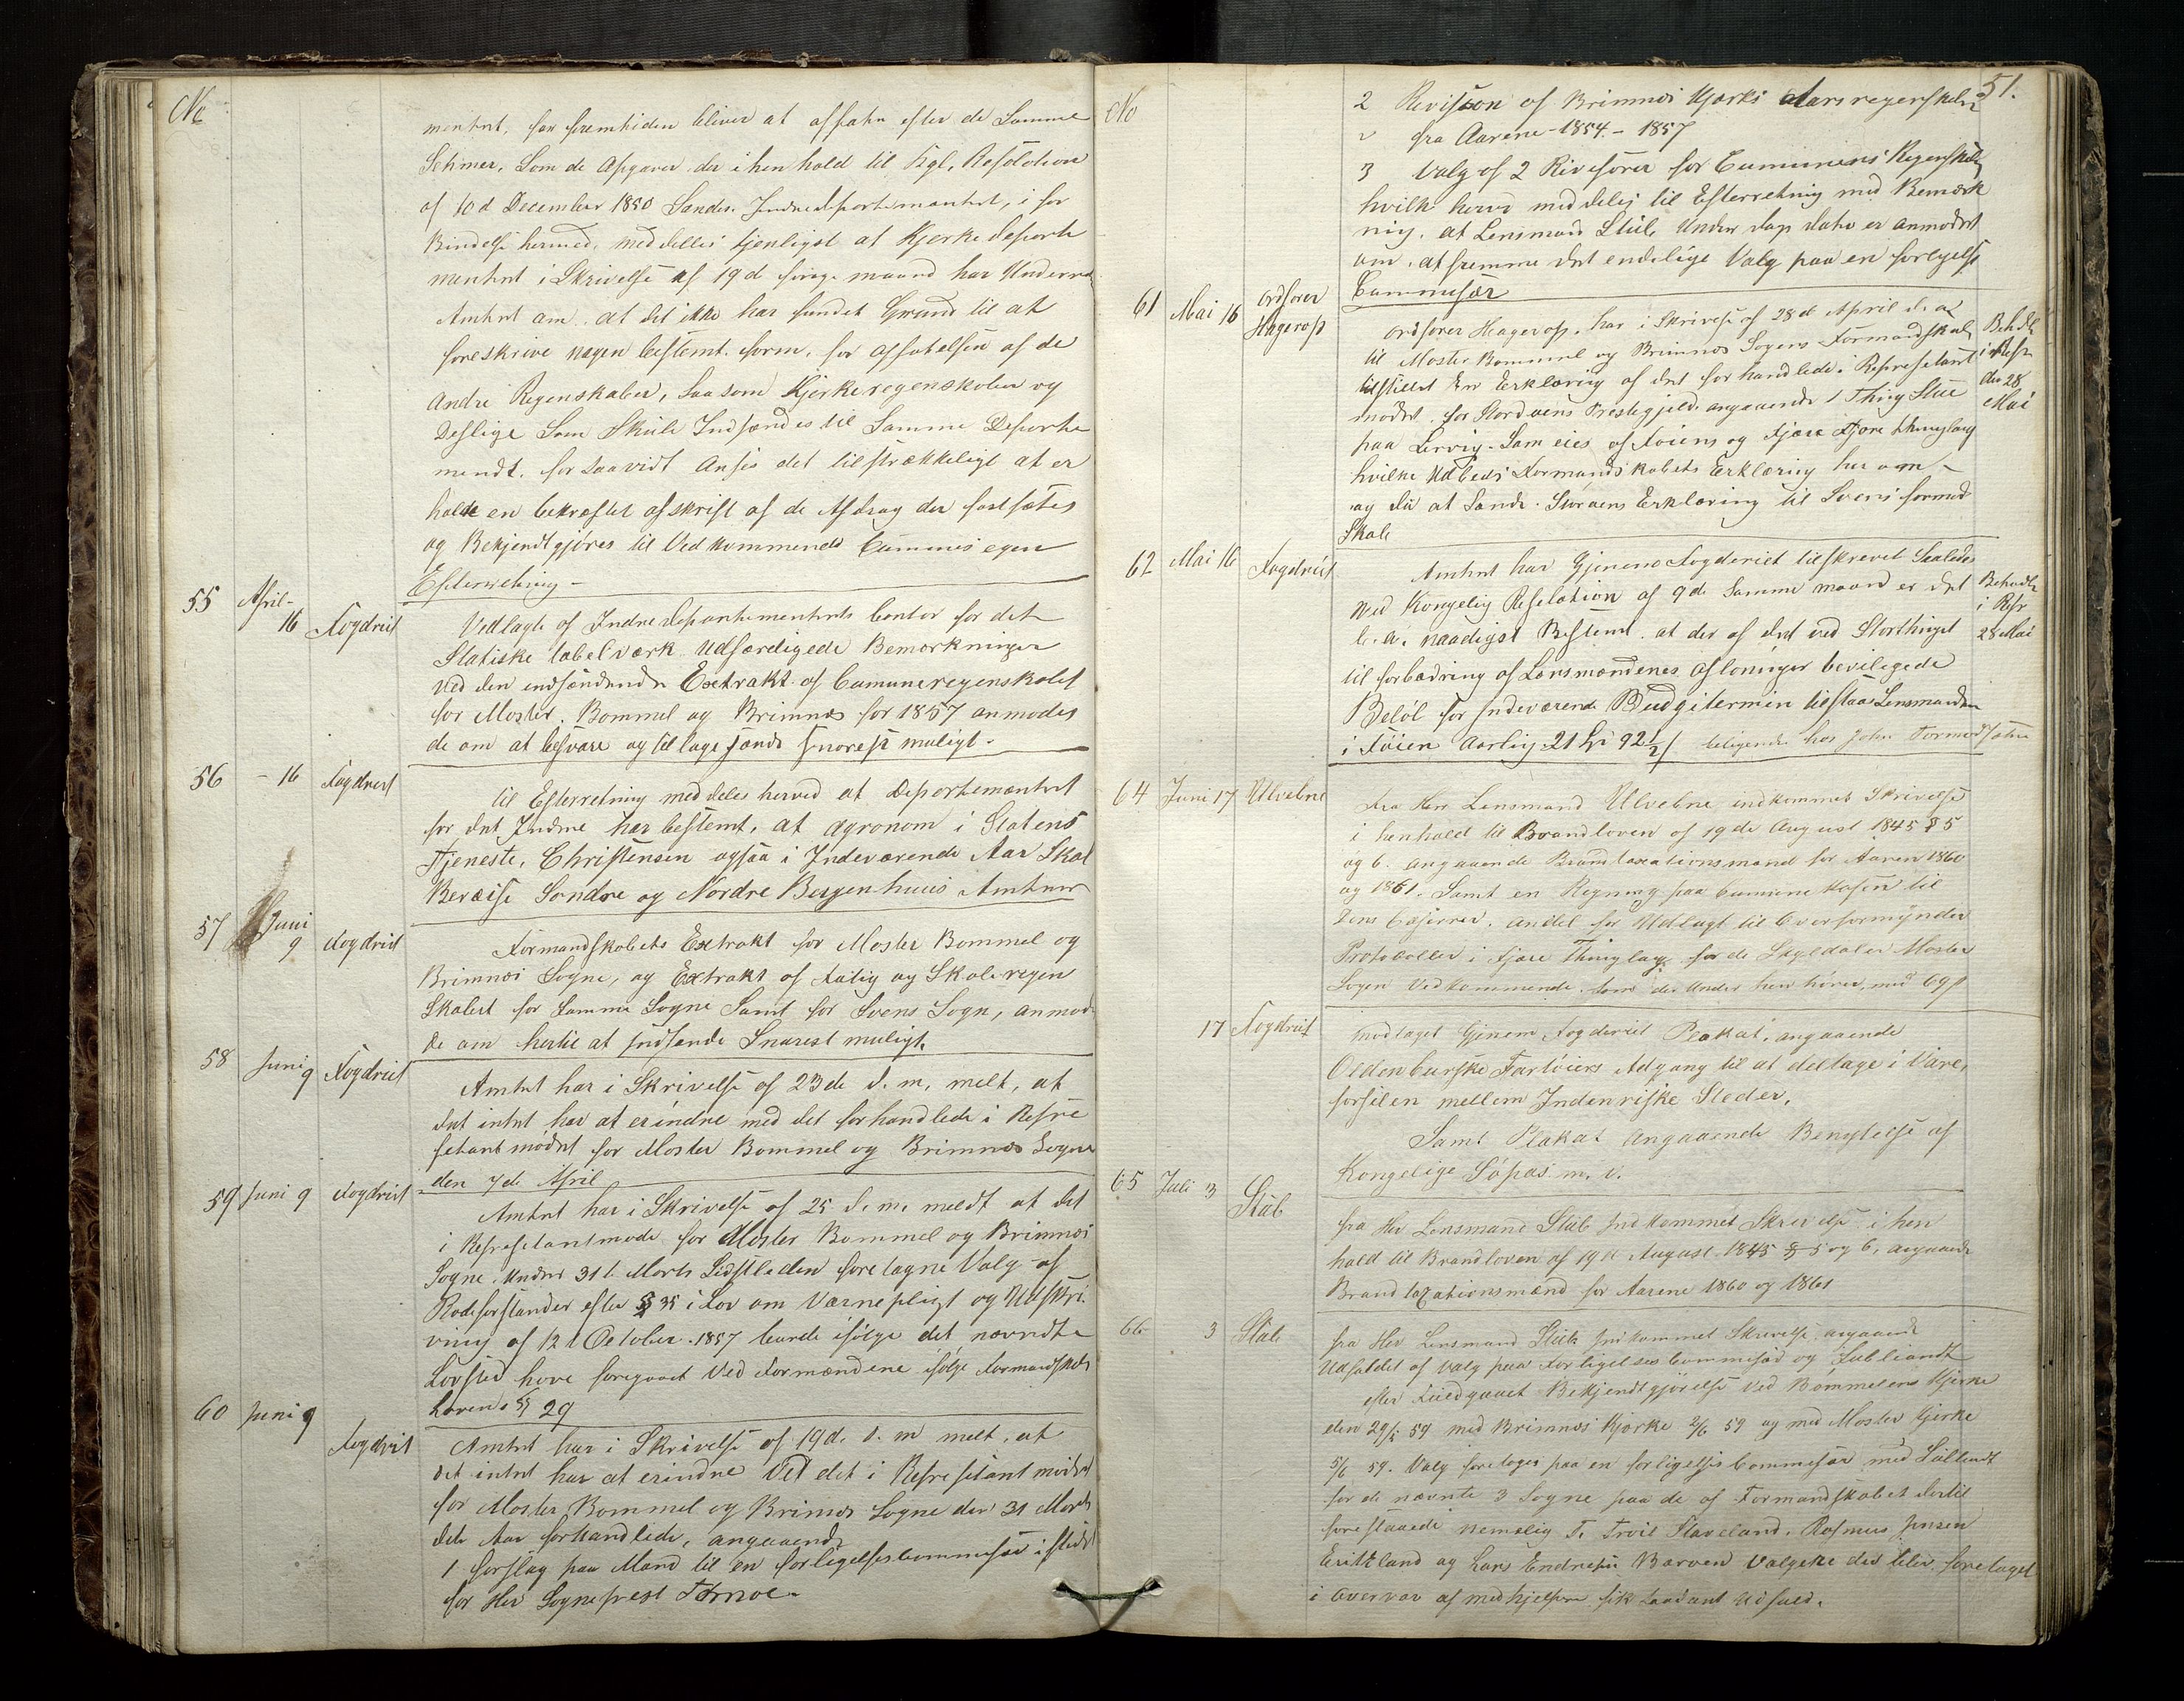 No
mentet, for fremtiden bliver at affatte efter de Samme
Schmer, Som de Opgaver der i henhold til Kgl. Resolotion
af 10d December 1850 Sendes Indredeportementet, i for
Bindelse hermed, meddelles tjenligst at Kjerkedeporte
mentet i Skrivelse af 19d forige maaned har Underret
Amtet om, at det ikke har fundet Grund til at
foreskrive nogen bestemt form, for affatelsen af de
Andre Regenskaber, Saasom Kjerkeregenskaber og
Deslige Som Skule Indsændes til Samme Deporte
mendt, for saavidt Anses det tilstrækkeligt at er
holde en bekræftet afskrift af de Afdrag der fastsætes
og Bekjendtgjøres til Vedkommende Cummunes egen
Efterretning -
55 April - 16 Fogdriet
Vedlagte af Indredepartementets Contor for det
Statiske tabelværk Udfærdigede Bemærkninger
ved den indsendende Extrakt af Cumuneregenskabet
for Moster, Bommel og Brimnæs for 1857 anmodes
de om at besvare og tilbagesænde snarest muligt -
56 - 16 Fogdriet
til Efterretning meddeles herved at Deportementet
for det Indre har bestemt, at Agronom i Statens
Tjeneste, Christensen ogsaa i Indeværende Aar Skal
Bereise Søndre og Nordre Bergenhuus Amter
57 Juni 9 Fogdriet
Formandskabets Extrakt for Moster Bommel og
Brimnæs Sogne, og Extrakt af Fatig og Skoleregen
Skabet for Samme Sogne Samt for Svens Sogn, anmod
de om hertil at Indsende Snarest muligt.
58 Juni 9 Fogdriet
Amtet har i Skrivelse af 23de d. m. melt, at
det intet har at erindre med det forhandlede i Repre
setantmødet for Moster Bommel og Brimnæs Sogne
den 7de April
59 Juni 9 Fogdriet
Amtet har i Skrivelse af 25 d. m. meldt at det
i Represetantmøde for Moster Bommel og Brimnæs
Sogne Under 31t Marts Sidstleden foretagne Valg af
Rodeforstander efter § 35 i Lov om Værnepligt og Udskri
vning af 12t October 1857 burde ifølge det nævndte
Lovsted have foregaaet Ved Formændene ifølge Formandskabs
Lovens § 29
60 Juni 9 Fogdriet
Amtet har i Skrivelse af 19d. d. m melt, at
det intet har at erindre Ved det i Represetantmødet
for Moster Bommel og Brimnæs Sogne den 31 Marts
dete Aar forhandlede, angaaende
1 forslag paa Mand til en forligelsescommisær istedet
for Her Sogneprest
No 51.
2 Revision af Brimnæs Kjærks Aarsregenskaber
fra Aarene 1854 - 1857
3 Valg af 2 Rivisorer for Cumunens Regenskaber
hvilke herved meddeles til Efterretning med Bemærk
ning, at Lensmand Stub Under Dags Dato er anmodet
om, at fremme det endelige Valg paa en forlgelse
Cummisær
61 Mai 16 Ordfører Hagerop
Ordfører Hagerop, har i Skrivelse af 28de April d. a
til Moster Bommel og Brimnæs Sogens Formandskab
tilstillet En Erklæring af det forhandlede i Represetant
mødet for Stordøens Prestegjeld angaaende 1 Thing Stue
paa Lervig Som eies af Føiens og Fjære Thinglaug
hvilke Udbedes Formandskabets Erklæring her om -
og du at Sende Storøens Erklæring til Svens formand
Skab
Behdl. i Repr. den 28 Mai
62 Mai 16 Fogdriet
Amtet har Gjenem Fogderiet tilskrevet Saaledes
Ved Kongelig Reselotion af 9de Samme maaned er det
b. a. naadigst Bestemt at der af det ved Storthinget
til forbædring af Lænsmændenes afløninger bevilegede
Beløb for Indeværende Budgitermin tilstaaes Lensmanden
i Føien Aarlig 21 Sp 92½ s beligende hos John Tormodsæter
Behadl. i Repr 28 Mai
64 Juni 17 Ulvebne
Fra Her Lensmand Ulvebne indkommet Skrivelse
i henhold til Brandloven af 19de August 1845 § 5
og 6. angaaende Brandtaxationsmænd for Aaren 1860
og 1861. Samt en Regning paa Cumune Kasen til
Dens Casserer, andel for Udlagt til Overformynder
Protocoller i Fjære Thinglag for de Skyldaler Moster
Sogen Vedkommende som der Under hen hører, med 69 s
17 Fogdriet
modtaget Gjenem Fogderiet Plakat, angaaende
Oldenburske Fartøiers Adgang til at deltage i Vare,
forselen mellem Indenriske Steder,
Samt Plakat Angaaende Benytelse af
Kongelige Søpas m. v.
65 Juli 3 Stub
fra Her Lensmand Stub Indkommet Skrivelse i hen
hold til Brandloven af 19de August 1845 § 5 og 6, angaaende
Brandtaxationsmænd for Aarene 1860 og 1861
66 3 Stub
fra Her Lensmand Stub Indkommet Skrivelse, angaaende
Udfaldet af Valg paa Forligelsescommisær og
efter Bekjendtgjørelse Ved Bømmelens Kjerke
den 29/5 59 med Brimnæs Kjærke 2/6 59 og med Moster Kjerke
5/6 59. Valg foretoges paa en forligelses Commisær med
for de nævnte 3 Sogne paa de af Formandskabet dertil
foreslaaede nemelig T. Staveland, Rasmus Jensen
og Lars Endresen Valgene der blev foretaget
i Overvær af medhjelpere fik saadant Udfald.